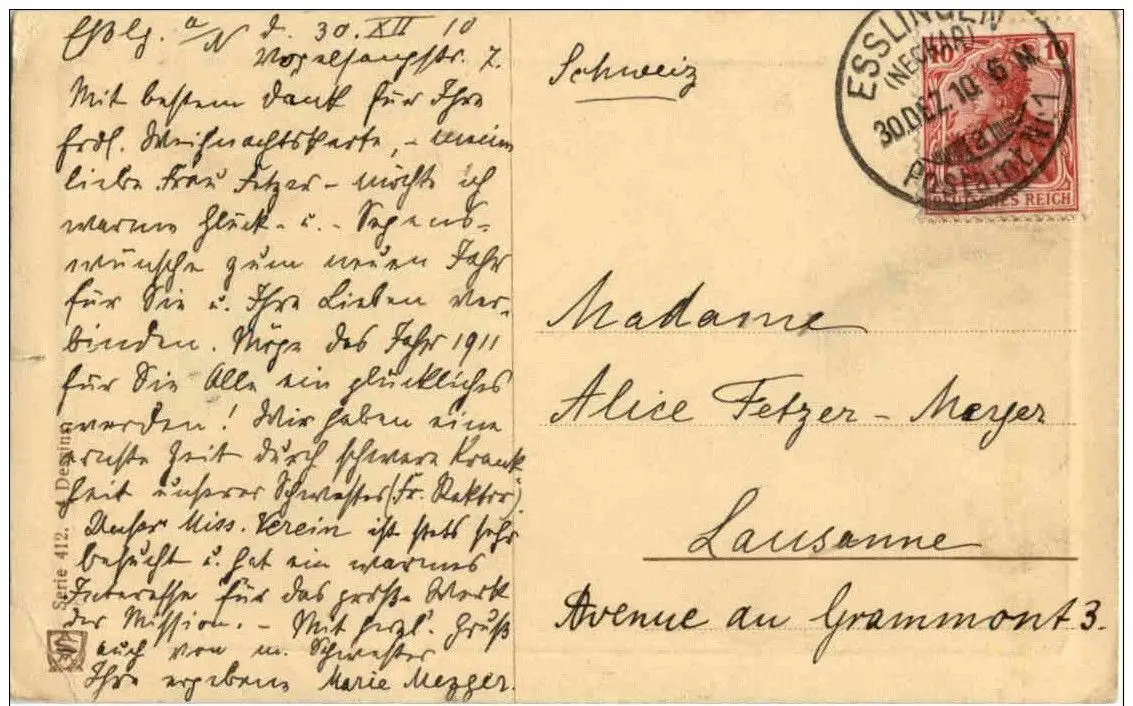 Eßlg. a/N d. 30. XII 10
Vogelsangstr. 7.
Mit bestem Dank für Ihre
frdl. Weihnachtskarte, - meine
liebe Frau Fetzer - möchte ich
warme Glück- u. - Segens-
wünsche zum neuen Jahr
für Sie u. Ihre Lieben ver-
binden. Möge das Jahr 1911
für Sie Alle ein glückliches
werden! Wir haben eine
ernste Zeit durch schwere Krank
heit unserer Schwester (Fr. Rektor)
Unser Miss. Verein ist stets sehr
besucht u. hat ein warmes
Interesse für das große Werk
der Mission. - Mit herzl. Gruß
auch von m. Schwester
Ihre ergebene Marie Mezger.
Serie 412. Dessins
Schweiz
ESSLINGEN
(NECKAR)
30.DEZ.10. 6 N.
Postamt Nr.1
10 10
DEUTSCHES REICH
Madame
Alice Fetzer-Meyer
Lausanne
Avenue du Grammont 3.